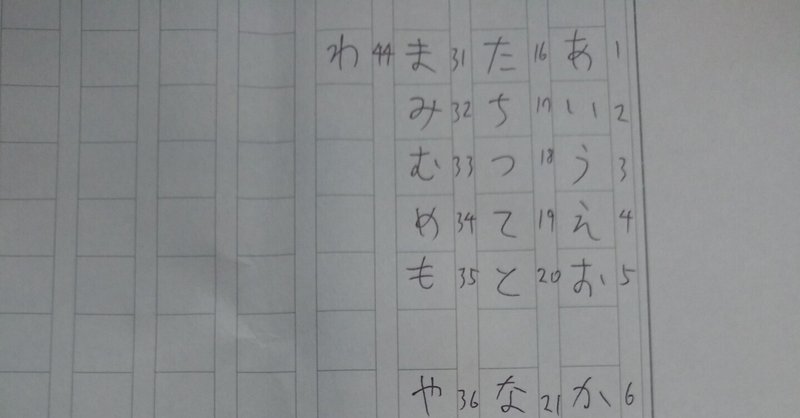 1 2 3 4 5 6
あいうえお か
16 17 18 19 20 21
たちつてと な
31 32 33 34 35 36
まみむめも や
44
わ